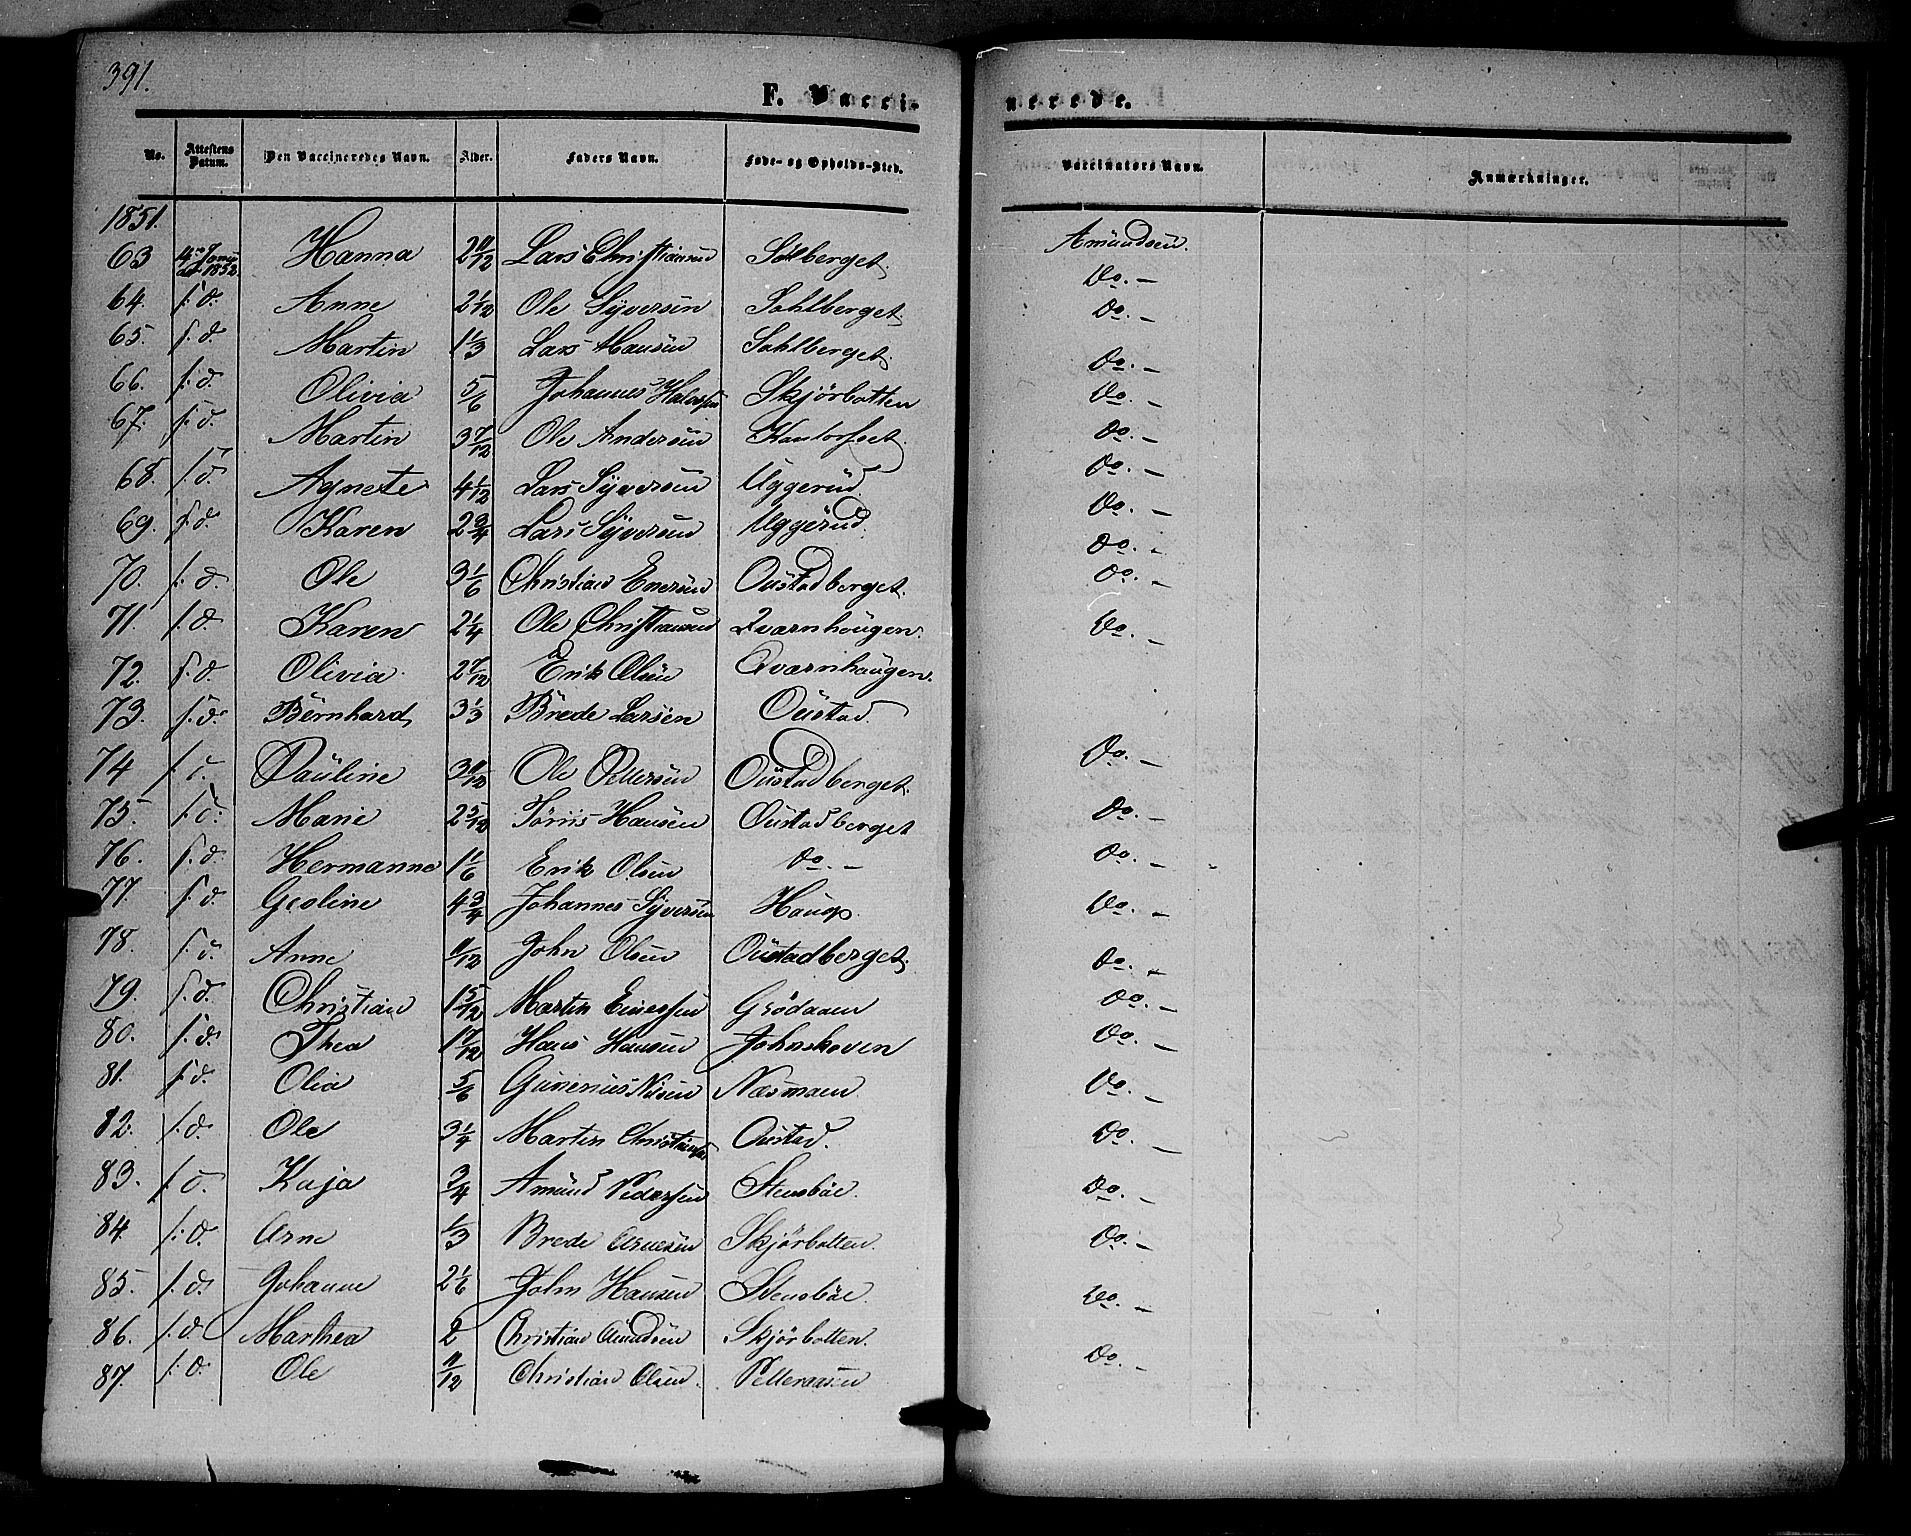 391.
F. Vacci-
nerede.
No. Attestens Datum. Den Vaccineredes Navn. Alder. Faders Navn. Føde- og Opholds-Sted. Vaccinators Navn. Anmærkninger.
1851.
63 1852. Hanna 2 11/12 Lars Christiansen Solberget. Amundsen.
64. s: d: Anne 2 1/12 Ole Syversen Sahlberget. Do. –
65. s. d. Martin 1 1/3 Lars Hansen Sahlberget. Do. –
66. s: d. Olivia 5/6 Johannes Skjörbotten Do. –
67. s: d. Martin 3 7/12 Ole Andersen Do. –
68. s. d. Agnete 4 1/12 Lars Syversen Uggerud. Do. –
69. s. d. Karen 2 3/4 Lars Syversen Uggerud. Do. –
70. s. d. Ole 3 1/6 Christian Enersen Oustadberget. Do. –
71. s. d. Karen 2 1/4 Ole Christiansen Qvarnhougen. Do. –
72. s. d. Olivia 2 7/12 Erik Olsen Qvarnhaugen. Do. –
73. s. d. Bernhard 3 1/3 Brede Larsen Oustad. Do. –
74 s. d. Pauline 3 11/12 Ole Pettersen Oustadberget. Do. –
75. s. d. Marie 2 5/12 Tøriis Hansen Oustadberget Do. –
76. s. d. Hermanne 1 1/6 Erik Olsen do. – Do. –
77. s. d. Geoline 4 3/4 Johannes Syversen Haug. Do. –
78. s. d. Anne 11/12 John Olsen Oustadberget. Do. –
79. s. d. Christian 1 5/12 Martin Einersen Grödaaen Do. –
80. s. d. Thea 1 7/12 Hans Hansen Johnskoven Do. –
81. s. d. Olia 5/6 Gunerius Nilsen Næsmoen. Do. –
82. s. d. Ole 3 1/4 Martin Christiansen Oustad. Do. –
83. s. d. Kaja 3/4 Amund Pedersen Stensböe. Do. –
84. s: d. Arne 1/3 Brede Arnesen Skjörbotten. Do. –
85. s. d. Johanne 2 1/6 John Hansen Stensböe. Do. –
86. s. d. Marthea 2 Christian Amundsen Skjörbotten. Do. –
87. s. d. Ole 11/12 Christian Olsen. Petteraasen